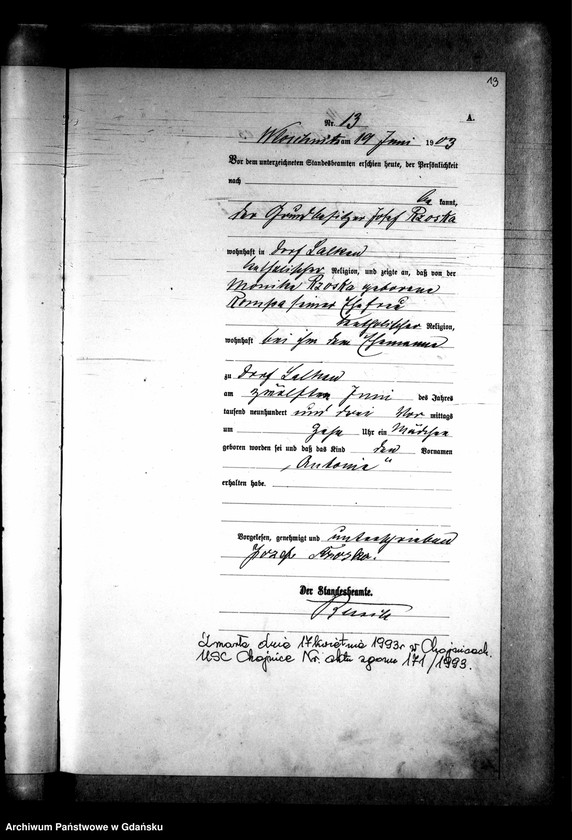 13
A.
Nr. 13
am 19 Juni 1903
Vor dem unterzeichneten Standesbeamten erschien heute, der Persönlichkeit
nach
be kannt,
der Grundbesitzer Josef Rzoska
wohnhaft in Dorf Lalkau
katholischer Religion, und zeigte an, daß von der
Monika Rzoska geborene
Rompa seiner Ehefrau
katholischer Religion,
wohnhaft bei ihm dem Ehemanne
zu Dorf Lalkau
am zwölften Juni des Jahres
tausend neunhundert und drei Vor mittags
um Zehn Uhr ein Mädchen
geboren worden sei und daß das Kind den Vornamen
„Antonie“
erhalten habe.
Vorgelesen, genehmigt und unterschrieben
Josef Rzoska.
Der Standesbeamte.
Zmarła dnia 17 kwietnia 1993r w Chojnicach.
USC Chojnice Nr. aktu zgonu 171/1993.
Archiwum Państwowe w Gdańsku